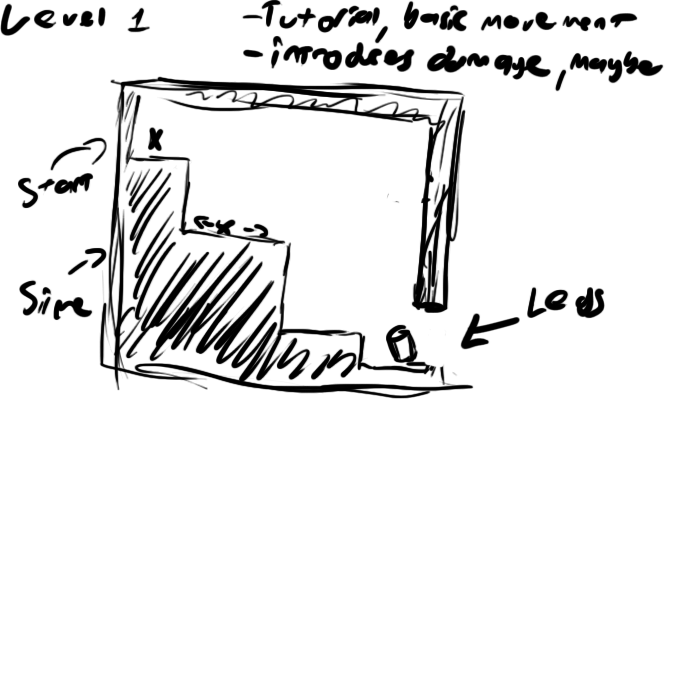 Level 1
-Tutorial, basic movement
-introduces damage, maybe
X
Start
<-x->
Slime